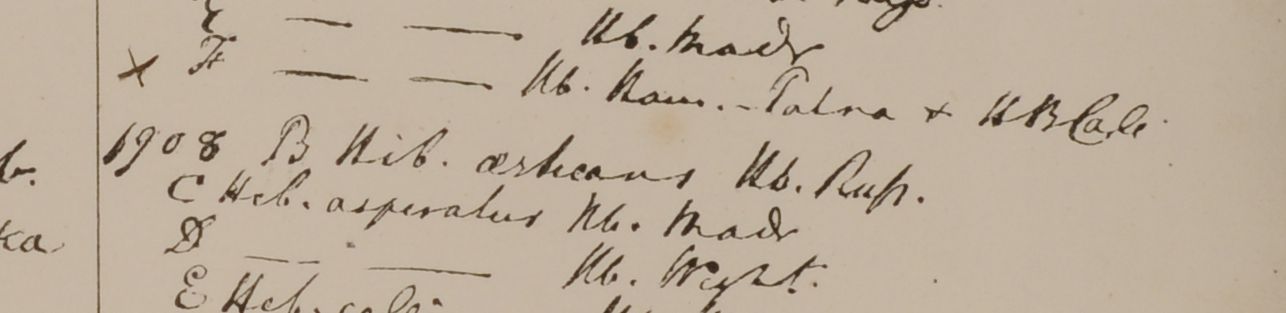 E — — Hb. Madr
x F — — Hb. Ham. - Patna + HBCalc
1908 B Hib. Hb. Russ.
C Hib. asperatus Hb. Madr
D — — Hb. Wight.
E Hib.
b.
ka